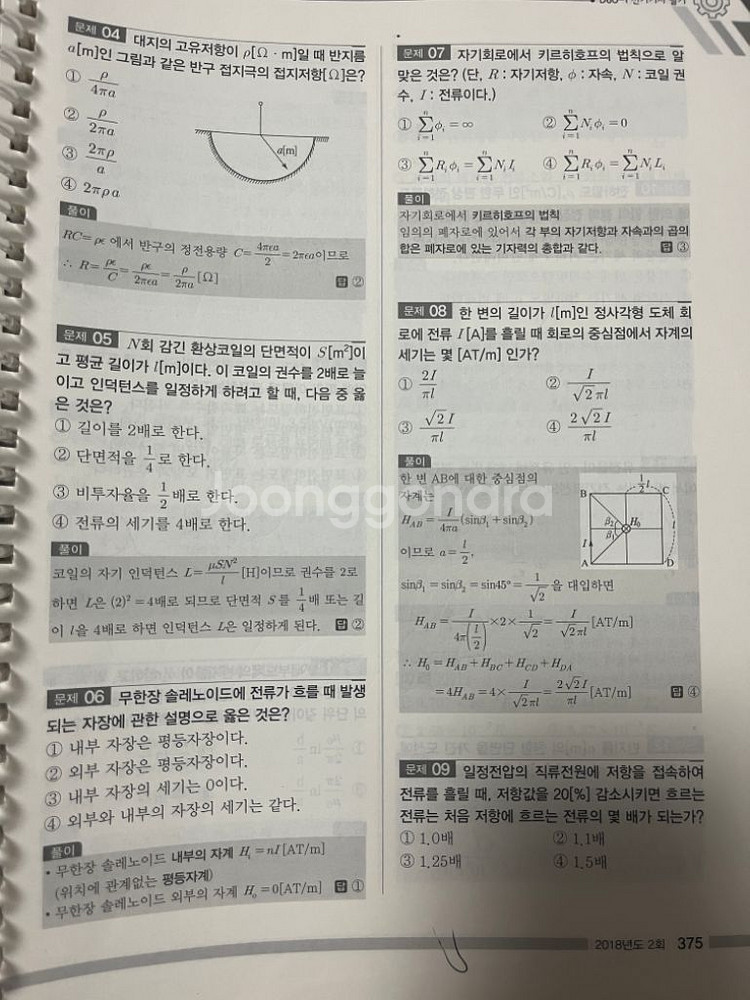 문제 04 대지의 고유저항이 ρ[Ω · m]일 때 반지름
a[m]인 그림과 같은 반구 접지극의 접지저항[Ω]은?
① ρ/4πa
② ρ/2πa
③ 2πρ/a
④ 2πρa
a[m]
풀이
RC=ρε 에서 반구의 정전용량 C=4πεa/2=2πεa이므로
∴ R=ρε/C=ρε/2πεa=ρ/2πa[Ω]
답 ②
문제 05 N회 감긴 환상코일의 단면적이 S[m²]이
고 평균 길이가 l[m]이다. 이 코일의 권수를 2배로 늘
이고 인덕턴스를 일정하게 하려고 할 때, 다음 중 옳
은 것은?
① 길이를 2배로 한다.
② 단면적을 1/4로 한다.
③ 비투자율을 1/2배로 한다.
④ 전류의 세기를 4배로 한다.
풀이
코일의 자기 인덕턴스 L=μSN²/l[H]이므로 권수를 2로
하면 L은 (2)²=4배로 되므로 단면적 S를 1/4배 또는 길
이 l을 4배로 하면 인덕턴스 L은 일정하게 된다. 답 ②
문제 06 무한장 솔레노이드에 전류가 흐를 때 발생
되는 자장에 관한 설명으로 옳은 것은?
① 내부 자장은 평등자장이다.
② 외부 자장은 평등자장이다.
③ 내부 자장의 세기는 0이다.
④ 외부와 내부의 자장의 세기는 같다.
풀이
• 무한장 솔레노이드 내부의 자계 Hᵢ=nI[AT/m]
(위치에 관계없는 평등자계)
• 무한장 솔레노이드 외부의 자계 Hₒ=0[AT/m] 답 ①
문제 07 자기회로에서 키르히호프의 법칙으로 알
맞은 것은? (단, R : 자기저항, φ : 자속, N : 코일 권
수, I : 전류이다.)
① Σⁿᵢ₌₁ φᵢ = ∞ ② Σⁿᵢ₌₁ Nᵢφᵢ = 0
③ Σⁿᵢ₌₁ Rᵢφᵢ = Σⁿᵢ₌₁ NᵢIᵢ ④ Σⁿᵢ₌₁ Rᵢφᵢ = Σⁿᵢ₌₁ NᵢLᵢ
풀이
자기회로에서 키르히호프의 법칙
임의의 폐자로에 있어서 각 부의 자기저항과 자속과의 곱의
합은 폐자로에 있는 기자력의 총합과 같다. 답 ③
문제 08 한 변의 길이가 l[m]인 정사각형 도체 회
로에 전류 I[A]를 흘릴 때 회로의 중심점에서 자계의
세기는 몇 [AT/m] 인가?
① 2I/πl ② I/√2πl
③ √2I/πl ④ 2√2I/πl
풀이
한 변 AB에 대한 중심점의
자계는
H_AB=I/4πa(sinβ₁+sinβ₂)
이므로 a=l/2,
sinβ₁=sinβ₂=sin45°=1/√2을 대입하면
H_AB=I/4π(l/2)×2×1/√2=I/√2πl[AT/m]
∴ H₀=H_AB+H_BC+H_CD+H_DA
=4H_AB=4×I/√2πl=2√2I/πl[AT/m] 답 ④
1/2 l
B C
β₂ H₀
β₁
I l
A D
문제 09 일정전압의 직류전원에 저항을 접속하여
전류를 흘릴 때, 저항값을 20[%] 감소시키면 흐르는
전류는 처음 저항에 흐르는 전류의 몇 배가 되는가?
① 1.0배 ② 1.1배
③ 1.25배 ④ 1.5배
2018년도 2회 375
Joonggonara